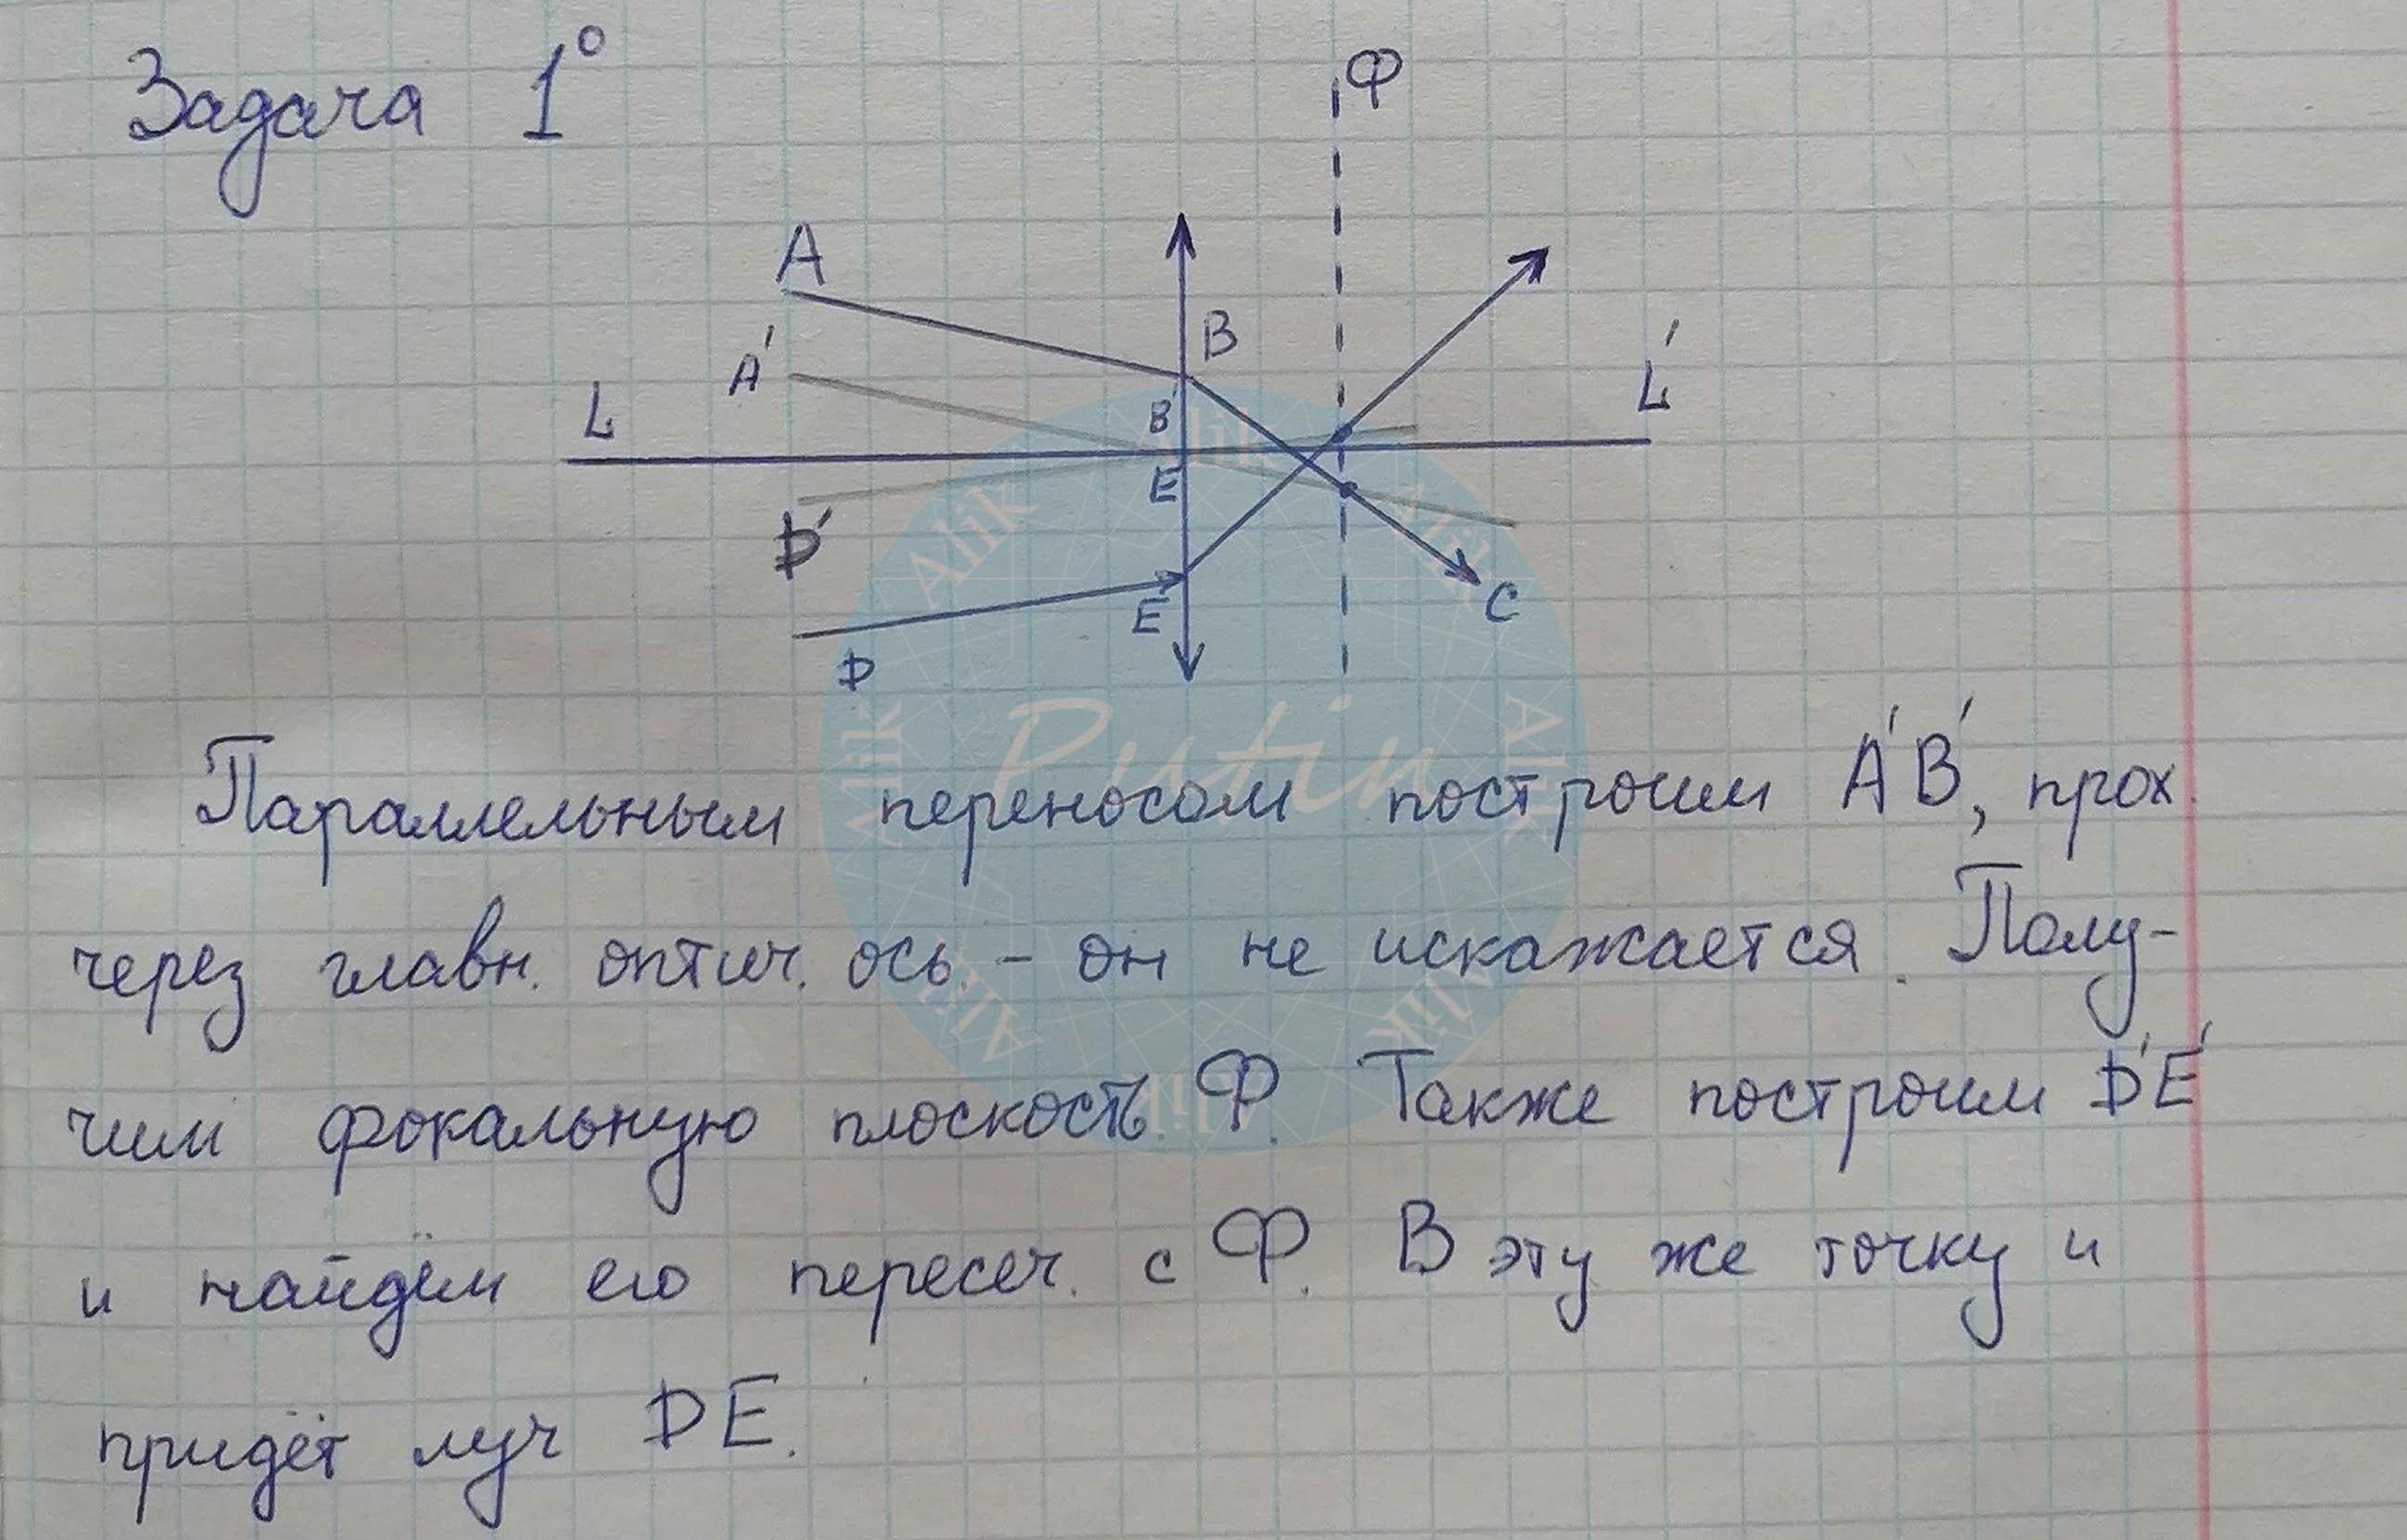 Задача 1°
Ф
A
B
A'
L
L'
B'
E'
D'
E
C
D
Параллельным переносом построим A'B', прох.
через главн. оптич. ось - он не искажается. Полу-
чим фокальную плоскость Ф. Также построим D'E'
и найдём его пересеч. с Ф. В эту же точку и
придёт луч DE.
Putin
Alik
Alik
Alik
Alik
Alik
Alik
Alik
Alik